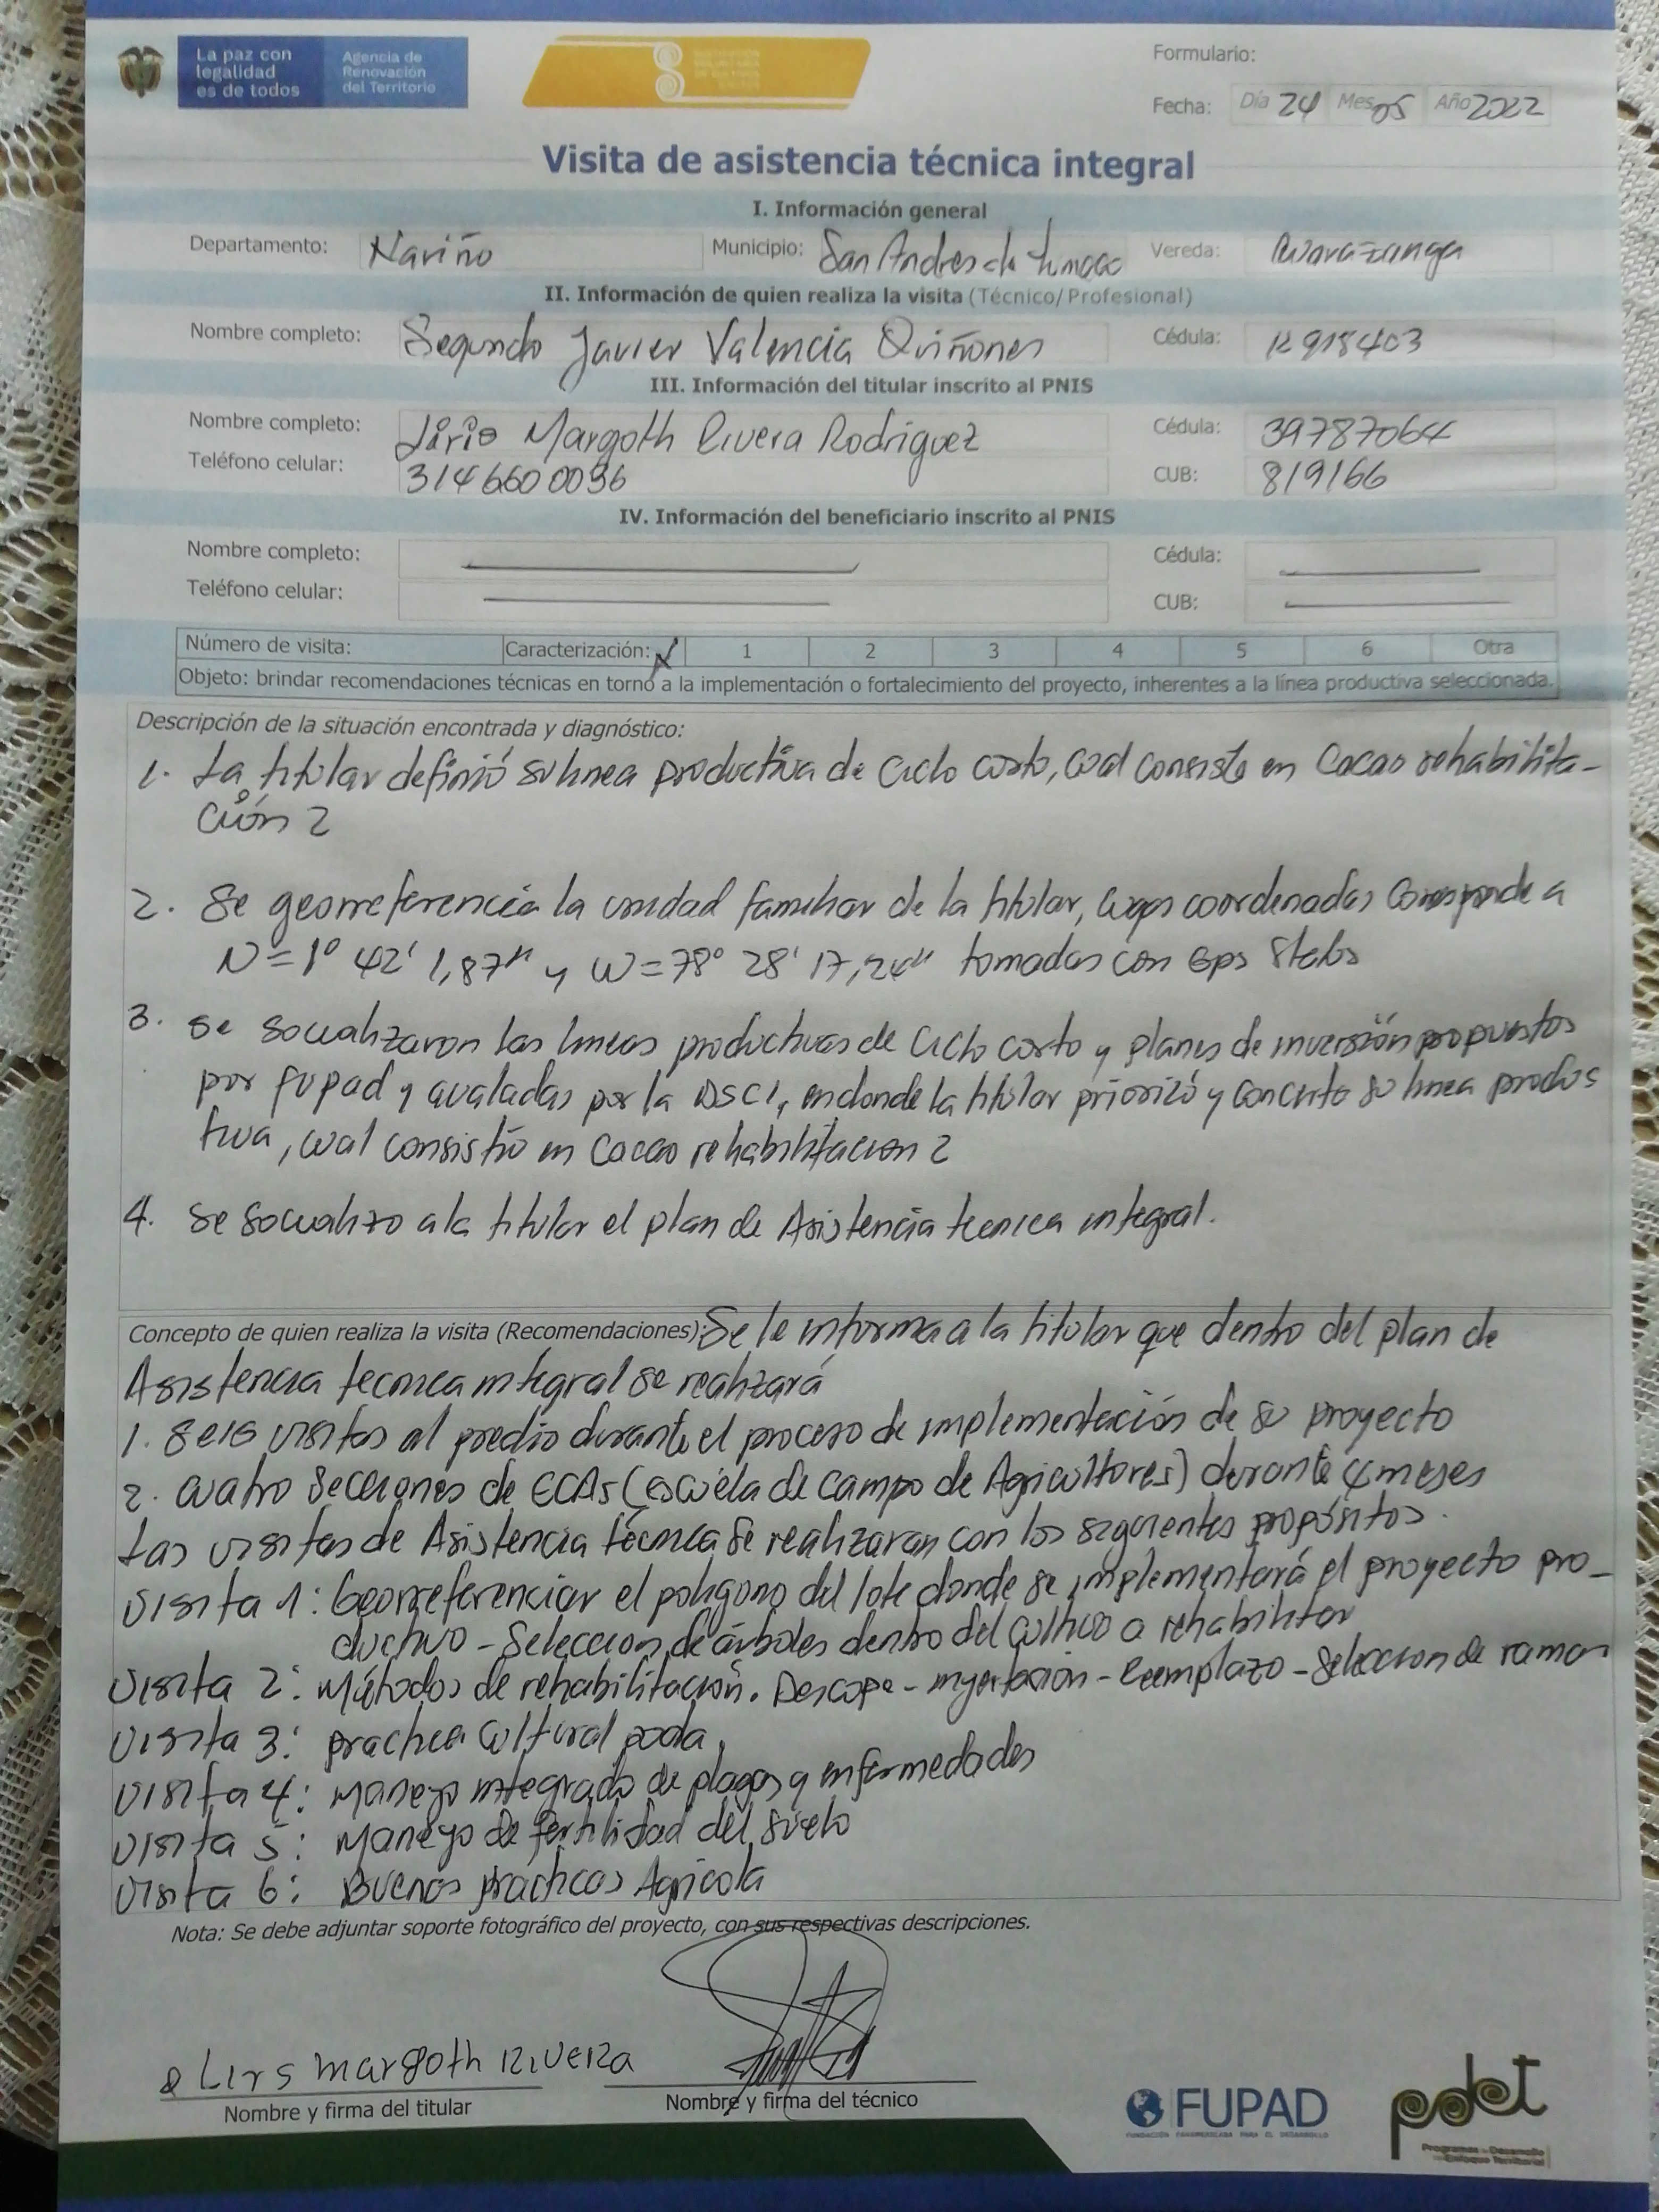 La paz con
legalidad
es de todos
Agencia de
Renovación
del Territorio
Formulario:
Fecha: Día 24 Mes 05 Año 2022
Visita de asistencia técnica integral
I. Información general
Departamento: Nariño Municipio: San Andres de tumaco Vereda:
II. Información de quien realiza la visita (Técnico/Profesional)
Nombre completo: Segundo Javier Valencia Quiñones Cédula: 12918403
III. Información del titular inscrito al PNIS
Nombre completo: Margoth Rivera Rodriguez Cédula: 39787064
Teléfono celular: 3146600096 CUB: 819166
IV. Información del beneficiario inscrito al PNIS
Nombre completo: Cédula:
Teléfono celular: CUB:
Número de visita: Caracterización: X 1 2 3 4 5 6 Otra
Objeto: brindar recomendaciones técnicas en torno a la implementación o fortalecimiento del proyecto, inherentes a la línea productiva seleccionada.
Descripción de la situación encontrada y diagnóstico:
1. La titular definió su linea productiva de Ciclo corto, cual consiste en Cacao rehabilita-
ción 2
2. Se georreferencia la unidad familiar de la titular, cuyas coordenadas corresponde a
N=1° 42' 1,87" y W=78° 28' 17,24" tomadas con Gps
3. se socializaron las lineas productivas de Ciclo corto y planes de inversión propuestos
por fupad y avaladas por la DSCI, en donde la titular priorizó y concreto su linea produc
tiva, cual consistio en Cacao rehabilitacion 2
4. se socializo a la titular el plan de Asistencia tecnica integral.
Concepto de quien realiza la visita (Recomendaciones): Se le informa a la titular que dentro del plan de
Asistencia tecnica integral se realizará
1. Seis visitas al predio durante el proceso de implementación de su proyecto
2. cuatro Secciones de ECAs (escuela de campo de Agricultores) durante 4 meses
Las visitas de Asistencia técnica se realizaran con los siguientes propósitos.
Visita 1: Georreferenciar el poligono del lote donde se implementará el proyecto pro-
ductivo - Seleccion de árboles dentro del cultivo a rehabilitar
Visita 2: Métodos de rehabilitación. Descope - injertación - Reemplazo - Seleccion de ramas
Visita 3: practica cultural poda.
Visita 4: Manejo integrado de plagas y enfermedades
Visita 5: Manejo de fertilidad del suelo
Visita 6: Buenas practicas Agricola
Nota: Se debe adjuntar soporte fotográfico del proyecto, con sus respectivas descripciones.
Lirs margoth RiveRa
Nombre y firma del titular
Nombre y firma del técnico
FUPAD
FUNDACIÓN PANAMERICANA PARA EL DESARROLLO
pdet